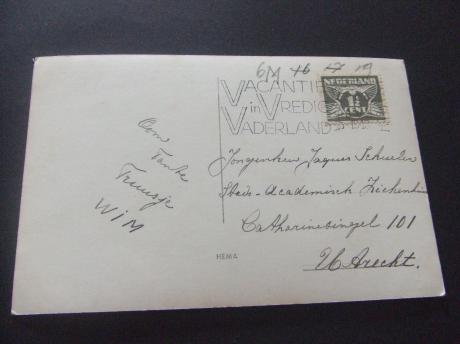 6M 46 17 19
VACANTIE
in VREDIG
VADERLAND
NEDERLAND
1½
CENT
Oom
Tante
Truusje
WiM
Jongenheer Jaques Scheeler
Stads-Academisch Ziekenhuis
Catharinesingel 101
Utrecht.
HEMA